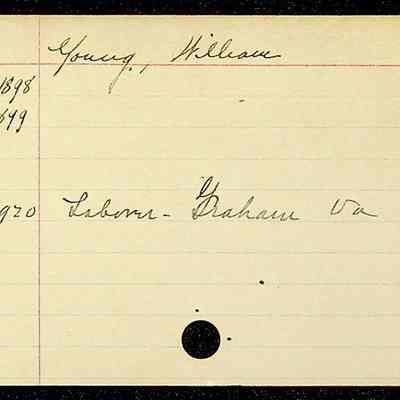 Young, William
1898
'99
920 Laborer - Graham Va